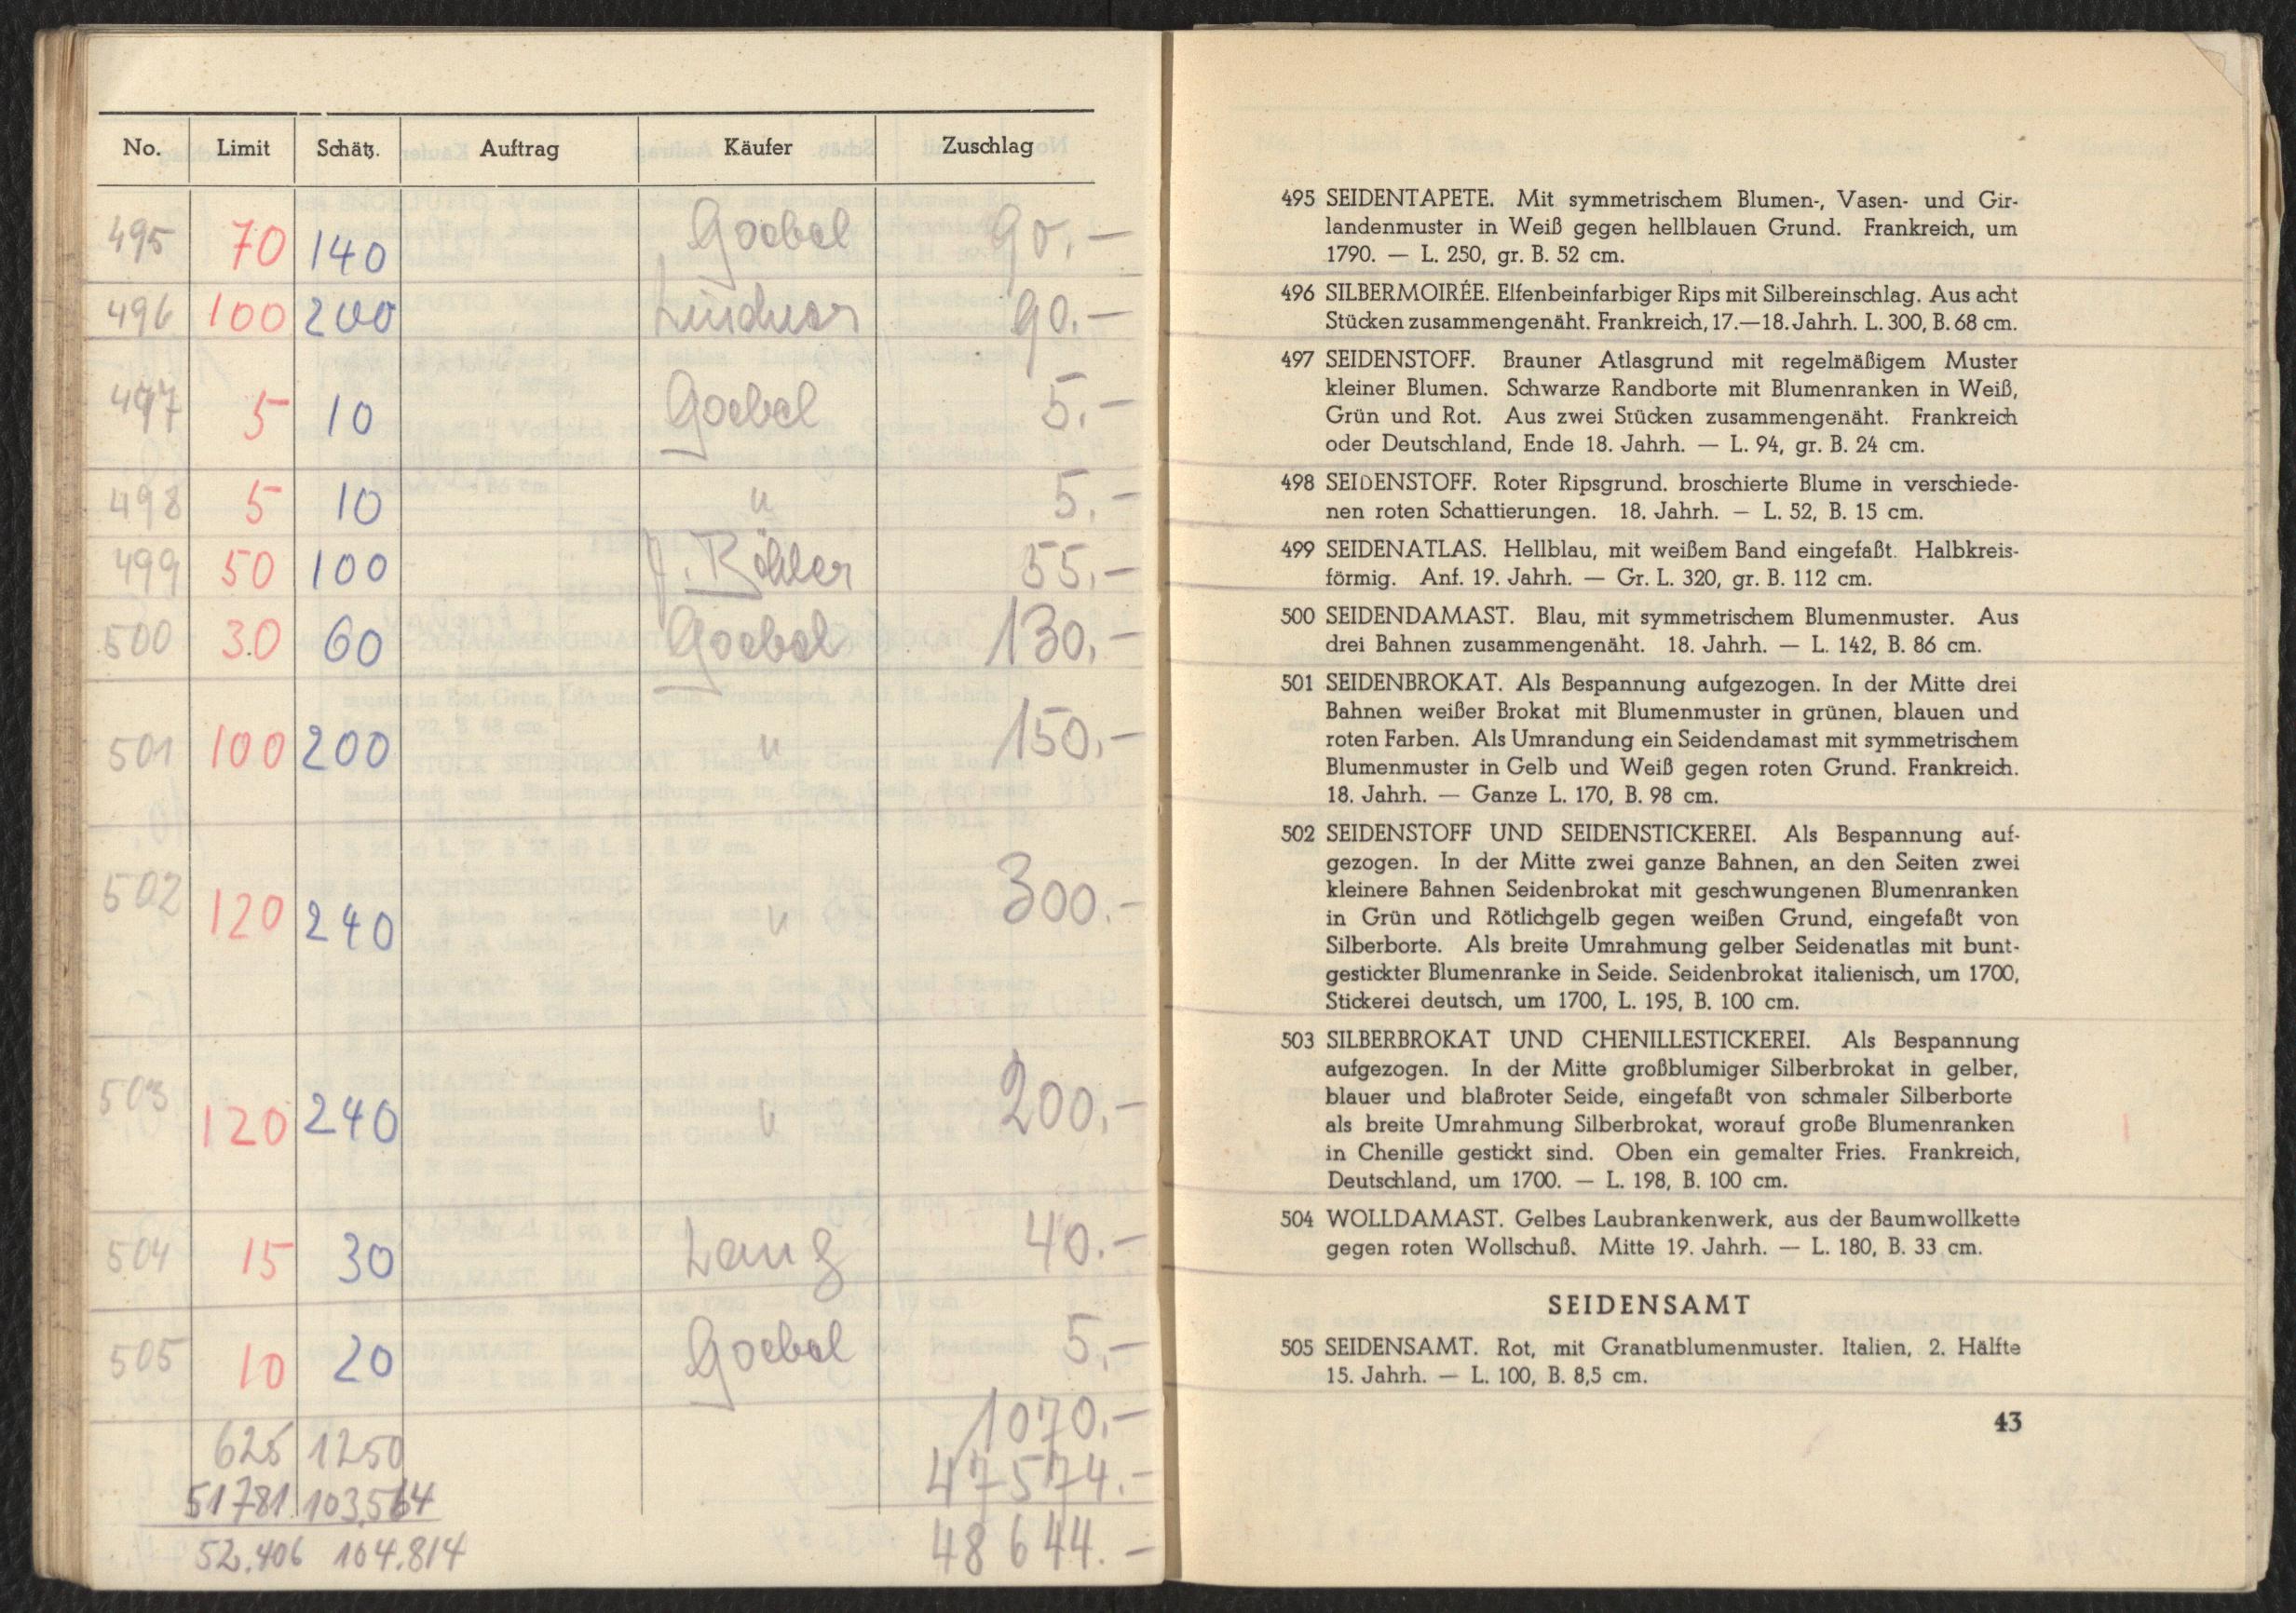 No. Limit Schätz. Auftrag Käufer Zuschlag
495 70 140 Goebel 90.—
496 100 200 Lindner 90.—
497 5 10 Goebel 5.—
498 5 10 " 5.—
499 50 100 J. Böhler 55.—
500 30 60 Goebel 130.—
501 100 200 " 150.—
502 120 240 " 300.—
503 120 240 " 200.—
504 15 30 Lang 40.—
505 10 20 Goebel 5.—
625 1250 1070.—
51781 103.564 47574.—
52.406 104.814 48644.—
495 SEIDENTAPETE. Mit symmetrischem Blumen-, Vasen- und Gir-
landenmuster in Weiß gegen hellblauen Grund. Frankreich, um
1790. — L. 250, gr. B. 52 cm.
496 SILBERMOIRÉE. Elfenbeinfarbiger Rips mit Silbereinschlag. Aus acht
Stücken zusammengenäht. Frankreich, 17.—18. Jahrh. L. 300, B. 68 cm.
497 SEIDENSTOFF. Brauner Atlasgrund mit regelmäßigem Muster
kleiner Blumen. Schwarze Randborte mit Blumenranken in Weiß,
Grün und Rot. Aus zwei Stücken zusammengenäht. Frankreich
oder Deutschland, Ende 18. Jahrh. — L. 94, gr. B. 24 cm.
498 SEIDENSTOFF. Roter Ripsgrund. broschierte Blume in verschiede-
nen roten Schattierungen. 18. Jahrh. — L. 52, B. 15 cm.
499 SEIDENATLAS. Hellblau, mit weißem Band eingefaßt. Halbkreis-
förmig. Anf. 19. Jahrh. — Gr. L. 320, gr. B. 112 cm.
500 SEIDENDAMAST. Blau, mit symmetrischem Blumenmuster. Aus
drei Bahnen zusammengenäht. 18. Jahrh. — L. 142, B. 86 cm.
501 SEIDENBROKAT. Als Bespannung aufgezogen. In der Mitte drei
Bahnen weißer Brokat mit Blumenmuster in grünen, blauen und
roten Farben. Als Umrandung ein Seidendamast mit symmetrischem
Blumenmuster in Gelb und Weiß gegen roten Grund. Frankreich.
18. Jahrh. — Ganze L. 170, B. 98 cm.
502 SEIDENSTOFF UND SEIDENSTICKEREI. Als Bespannung auf-
gezogen. In der Mitte zwei ganze Bahnen, an den Seiten zwei
kleinere Bahnen Seidenbrokat mit geschwungenen Blumenranken
in Grün und Rötlichgelb gegen weißen Grund, eingefaßt von
Silberborte. Als breite Umrahmung gelber Seidenatlas mit bunt-
gestickter Blumenranke in Seide. Seidenbrokat italienisch, um 1700,
Stickerei deutsch, um 1700, L. 195, B. 100 cm.
503 SILBERBROKAT UND CHENILLESTICKEREI. Als Bespannung
aufgezogen. In der Mitte großblumiger Silberbrokat in gelber,
blauer und blaßroter Seide, eingefaßt von schmaler Silberborte
als breite Umrahmung Silberbrokat, worauf große Blumenranken
in Chenille gestickt sind. Oben ein gemalter Fries. Frankreich,
Deutschland, um 1700. — L. 198, B. 100 cm.
504 WOLLDAMAST. Gelbes Laubrankenwerk, aus der Baumwollkette
gegen roten Wollschuß. Mitte 19. Jahrh. — L. 180, B. 33 cm.
SEIDENSAMT
505 SEIDENSAMT. Rot, mit Granatblumenmuster. Italien, 2. Hälfte
15. Jahrh. — L. 100, B. 8,5 cm.
43